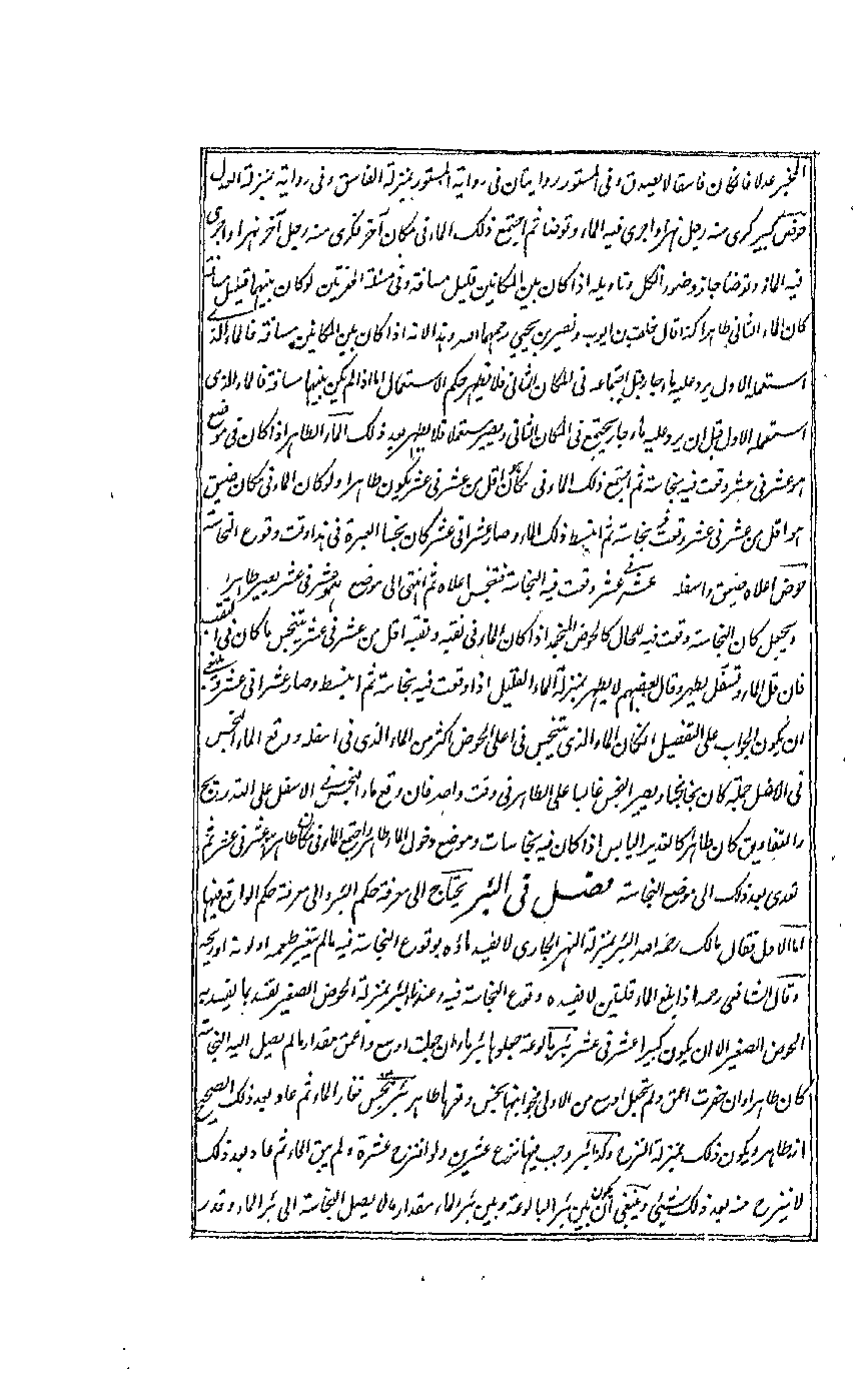 المخبر عدلا فان كان فاسقا لا يصدق وفى المستور روايتان فى رواية المستور بمنزلة الفاسق وفى رواية بمنزلة العدل
حوض كبير كرى منه رجل نهرا واجرى فيه الماء وتوضا ثم اجتمع ذلك الماء فى مكان آخر فكرى منه رجل آخر نهرا واجرى
فيه الماء وتوضا جاز وضوء الكل وتاويله اذا كان بين المكانين قليل مسافة وفى مسئلة الحفرتين لو كان بينهما قليل مسافة
كان الماء الثانى طاهرا كذا قال خلف بن ايوب ونصير بن يحيى رحمهما الله وهذا لانه اذا كان بين المكانين مسافة فالماء الذى
استعمله الاول يرد عليه ماء جار قبل اجتماعه فى المكان الثانى فلا يظهر حكم الاستعمال اما اذا لم يكن بينهما مسافة فالماء الذى
استعمله الاول قبل ان يرد عليه ماء جار يجتمع فى المكان الثانى ويصير مستعملا فلا يطهر بعد ذلك الماء الطاهر اذا كان فى موضع
هو عشر فى عشر وقعت فيه نجاسة ثم اجتمع ذلك الماء فى مكان اقل من عشر فى عشر يكون طاهرا ولو كان الماء فى مكان ضيق
هو اقل من عشر فى عشر وقعت فيه نجاسة ثم انبسط ذلك الماء وصار عشرا فى عشر كان نجسا العبرة فى هذا وقت وقوع النجاسة
حوض اعلاه ضيق واسفله عشر فى عشر وقعت فيه النجاسة فتنجس اعلاه ثم انتهى الى موضع هو عشر فى عشر يصير طاهرا
ويجعل كان النجاسة وقعت فيه للحال كالحوض المنجمد اذا كان الماء فى نقبه ونقبه اقل من عشر فى عشر يتنجس ما كان فى النقب
فان قل الماء وتسفل يطهر وقال بعضهم لا يطهر بمنزلة الماء القليل اذا وقعت فيه نجاسة ثم انبسط وصار عشرا فى عشر وينبغى
ان يكون الجواب على التفصيل ان كان الماء الذى تنجس فى اعلى الحوض اكثر من الماء الذى فى اسفله ووقع الماء النجس
فى الاسفل جملة كان نجسا ويصير النجس غالبا على الطاهر فى وقت واحد فان وقع ماء النجس فى الاسفل على التدريج
والتفاريق كان طاهرا كالغدير اليابس اذا كان فيه نجاسات وموضع دخول الماء طاهر واجتمع الماء فى مكان طاهر هو عشر فى عشر ثم
تعدى بعد ذلك الى موضع النجاسة فصل فى البئر يحتاج الى معرفة حكم البئر والى معرفة حكم الواقع فيها
اما الاول فقال مالك رحمه الله البئر بمنزلة النهر الجارى لا يفسد ماؤه بوقوع النجاسة فيه ما لم يتغير طعمه او لونه او ريحه
وقال الشافعى رحمه الله اذا بلغ الماء قلتين لا يفسده وقوع النجاسة فيه وعندنا البئر بمنزلة الحوض الصغير يفسد بما يفسد به
الحوض الصغير الا ان يكون كبيرا عشر فى عشر بئر بالوعة جعلوها بئر ماء ان جعلت اوسع واعمق مقدار ما لم يصل اليه النجاسة
كان طاهرا وان حفرت اعمق ولم تجعل اوسع من الاولى فجوانبها نجس وقعرها طاهر بئر تنجس فغار الماء ثم عاد بعد ذلك الصحيح
انه طاهر ويكون ذلك بمنزلة النزح وكذا بئر وجب فيها نزح عشرين دلوا فنزح عشرة ولم يبق الماء ثم عاد بعد ذلك
لا ينزح منه بعد ذلك شيئ وينبغى ان يكون بين بئر البالوعة وبين بئر الماء مقدار ما لا يصل النجاسة الى بئر الماء وقدر